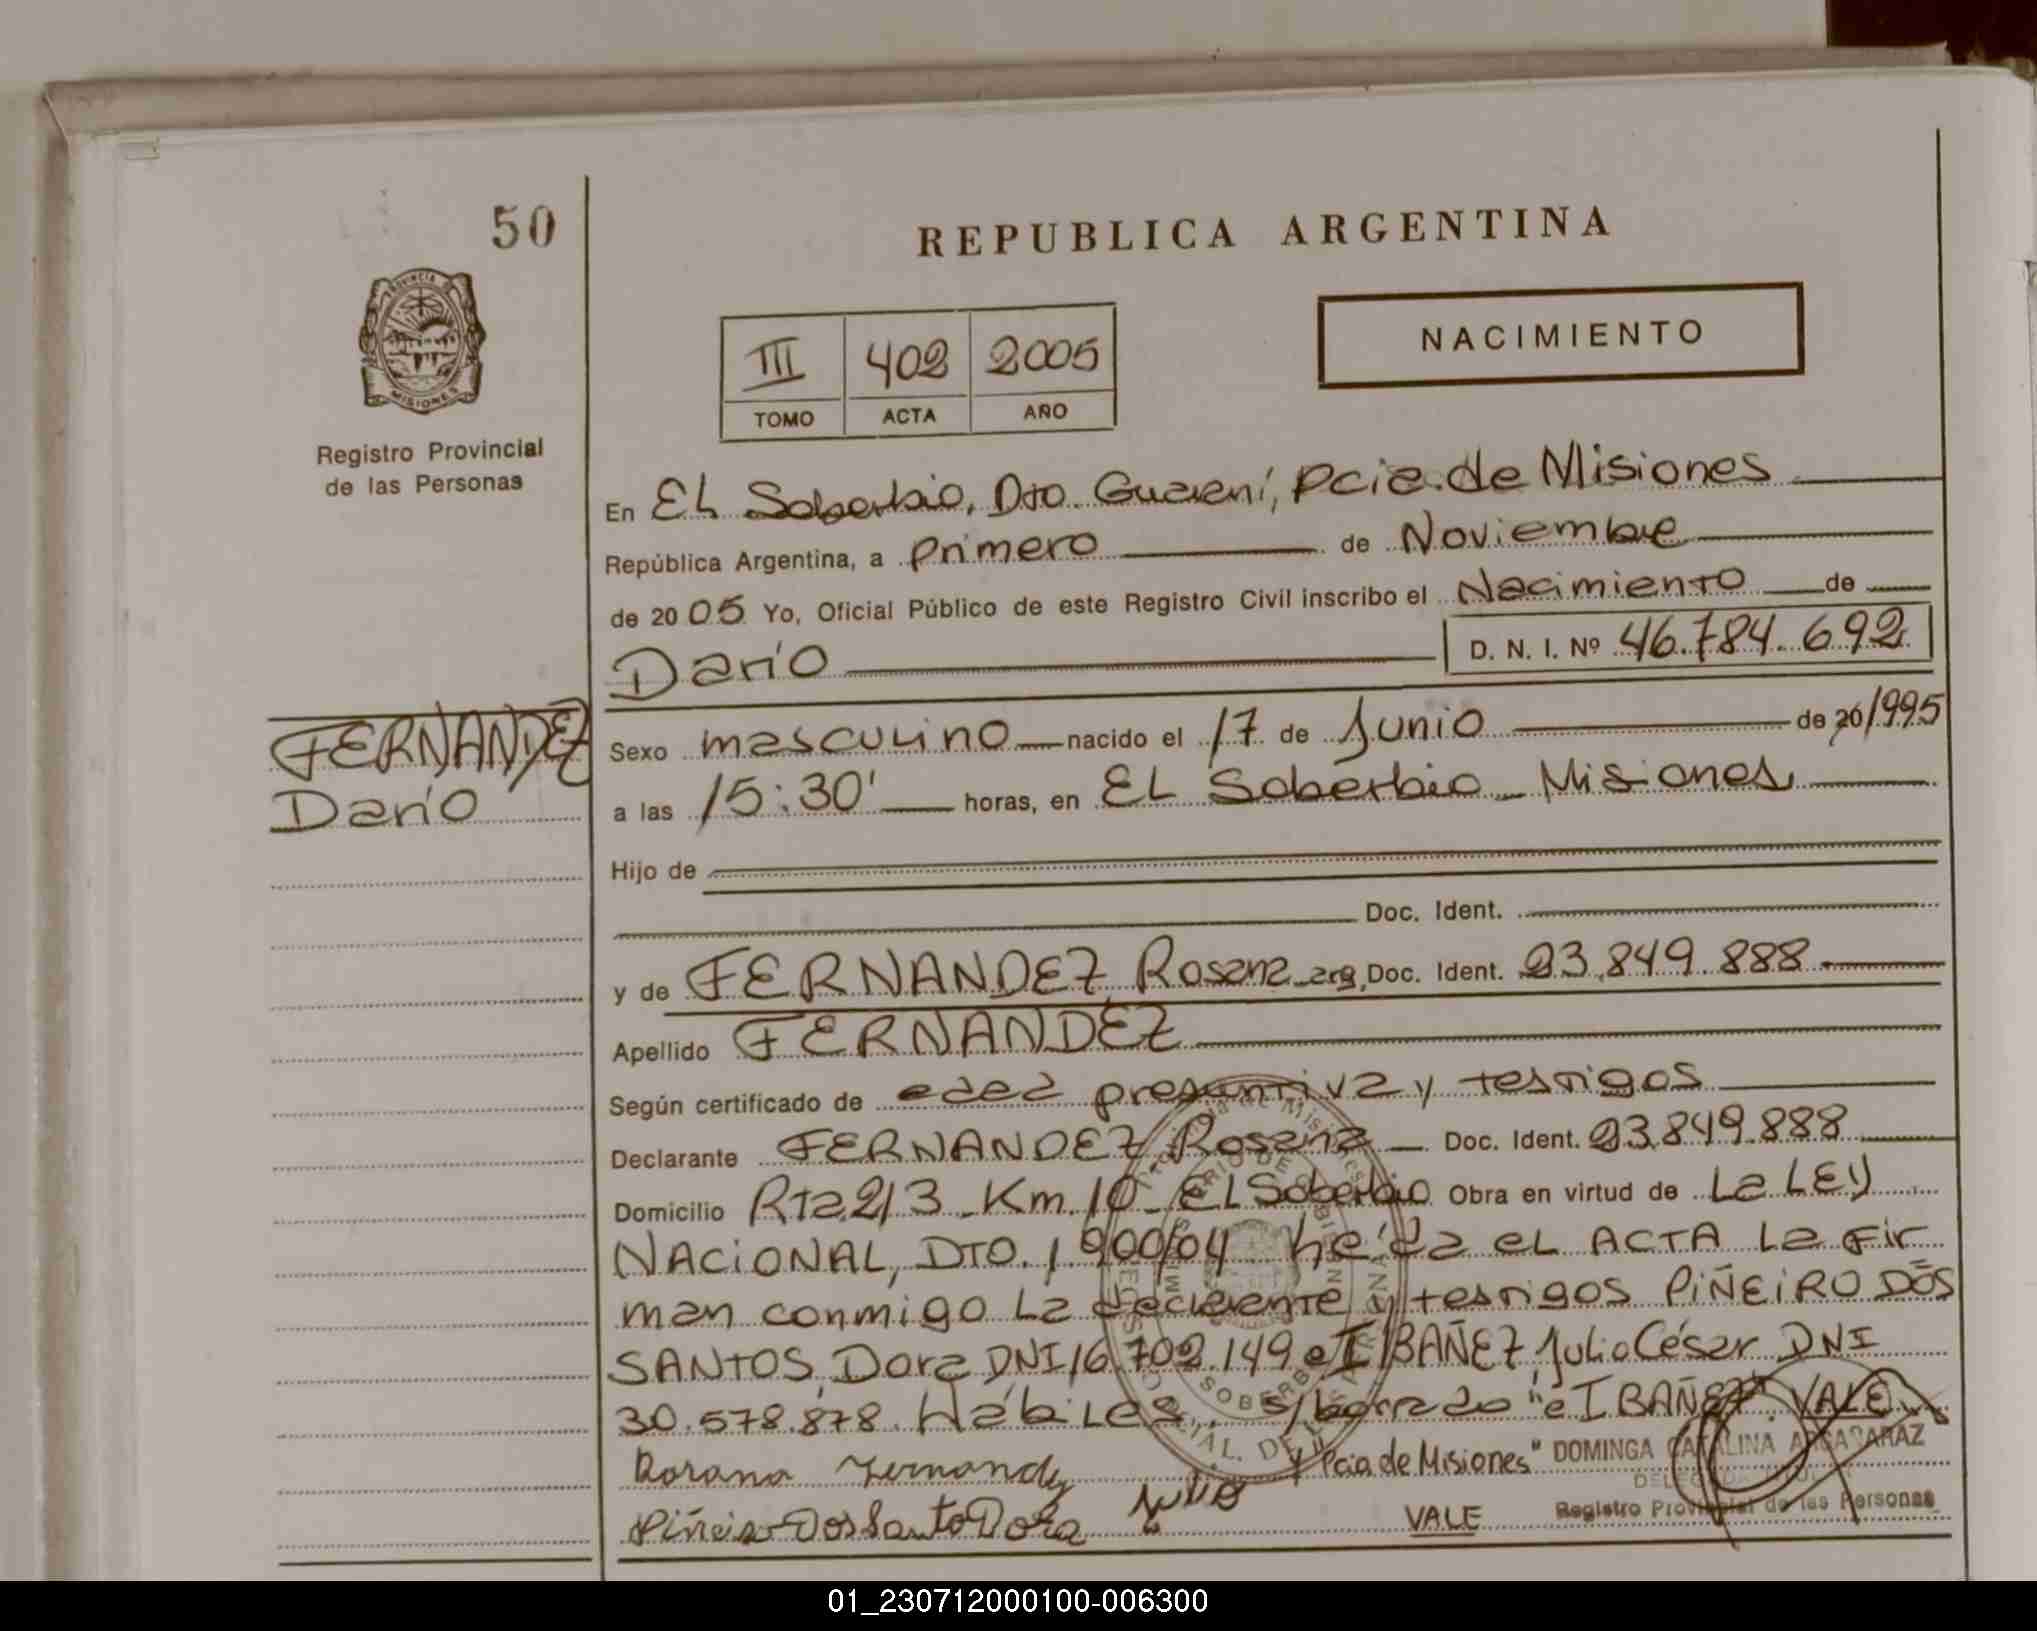 50
REPUBLICA ARGENTINA
PROVINCIA DE
MISIONES
NACIMIENTO
III 402 2005
TOMO ACTA AÑO
Registro Provincial
de las Personas
En EL Soberbio, Dto. Guaraní, Pcia. de Misiones
República Argentina, a Primero de Noviembre
de 2005 Yo, Oficial Público de este Registro Civil inscribo el Nacimiento de
Darío D. N. I. Nº 46.784.692
FERNANDEZ
Darío
Sexo masculino nacido el 17 de Junio de 20/1995
a las 15:30' horas, en EL Soberbio - Misiones
Hijo de
Doc. Ident.
y de FERNANDEZ Rosana arg, Doc. Ident. 23.849.888
Apellido FERNANDEZ
Según certificado de edad presuntiva y testigos
Declarante FERNANDEZ Rosana Doc. Ident. 23.849.888
Domicilio Rta 2/3 - Km. 10 - EL Soberbio Obra en virtud de La LEY
NACIONAL, DTO. 1.900/04 Leída eL ACTA La Fir
man conmigo La declarante y testigos PIÑEIRO DOS
SANTOS, Dora DNI 16.702.149 e IBAÑEZ, Julio César DNI
30.578.878. HábiLes. s/borrado "e IBAÑEZ" VALE
y Pcia de Misiones" DOMINGA CATALINA
Rosana Fernandez
Registro Provincial de las Personas
Piñeiro Dos Santo Dora Julio VALE
01_230712000100-006300